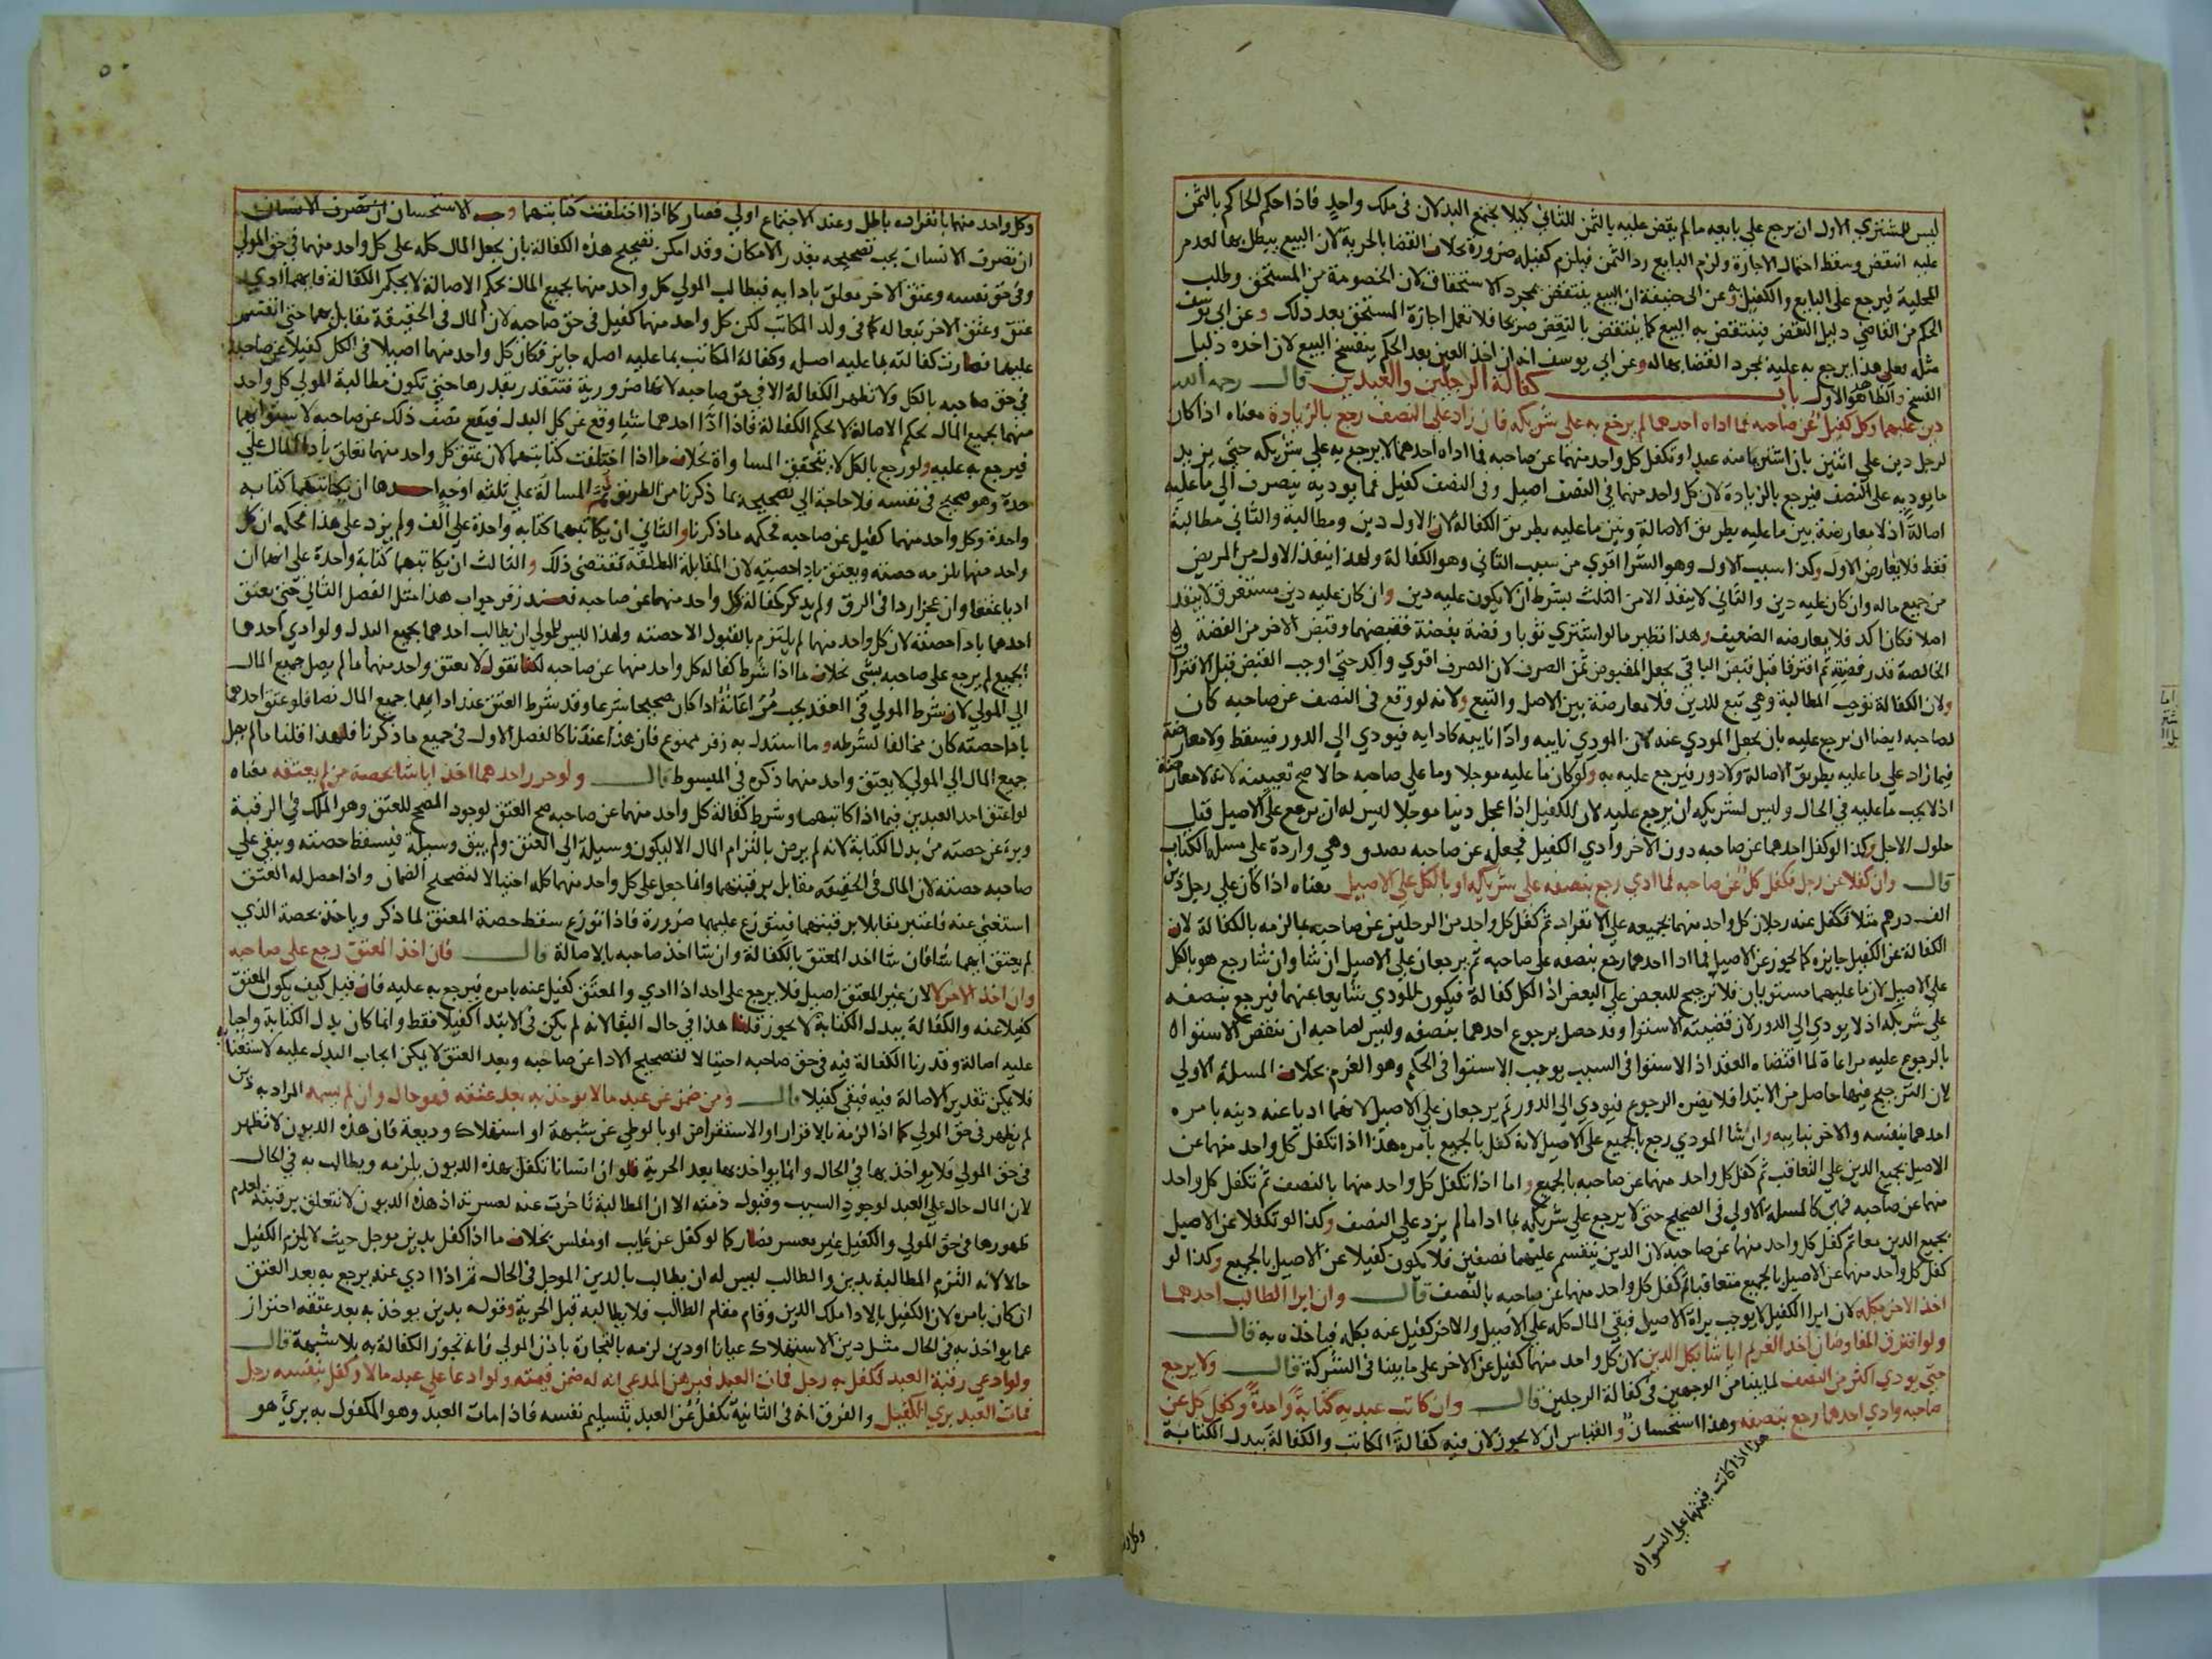 ليس للمشتري الاول ان يرجع علي بايعه ما لم يقض عليه بالثمن للثاني كيلا يجتمع البدلان في ملك واحد فاذا حكم الحاكم بالثمن
عليه انتقض وسقط احتمال الاجازة ولزم البايع رد الثمن فيلزم كفيله ضرورة بخلاف القضا بالحرية لان البيع يبطل بها لعدم
المحلية فيرجع علي البايع والكفيل وعن ابي حنيفة ان البيع ينتقض بمجرد الاستحقاق لان الخصومة من المستحق وطلب
الحكم من القاضي دليل النقض فينتقض به البيع كما ينتقض بالنقض صريحا فلا تعمل اجازة المستحق بعد ذلك وعن ابي يوسف
مثله فعلي هذا يرجع به عليه بمجرد القضا بها له وعن ابي يوسف اخذ العين بعد الحكم ينفسخ البيع لان اخذه دليل
الفسخ والظاهر هو الاول باب كفالة الرجلين والعبدين قال رحمه الله
دين عليهما وكل كفيل عن صاحبه فما اداه احدهما لم يرجع به علي شريكه فان زاد علي النصف رجع بالزيادة معناه اذا كان
لرجل دين علي اثنين بان اشتريا منه عبدا وتكفل كل واحد منهما عن صاحبه فما اداه احدهما لا يرجع به علي شريكه حتي يزيد
ما يوديه علي النصف فيرجع بالزيادة لان كل واحد منهما في النصف اصيل وفي النصف كفيل فما يوديه ينصرف الي ما عليه
اصالة اذ لا معارضة بين ما عليه بطريق الاصالة وبين ما عليه بطريق الكفالة لان الاول دين ومطالبة والثاني مطالبة
فقط فلا يعارض الاول وكذا سبب الاول وهو الشرا اقوي من سبب الثاني وهو الكفالة ولهذا ينفذ الاول من المريض
من جميع ماله وان كان عليه دين والثاني لا ينفذ الا من الثلث بشرط ان لا يكون عليه دين وان كان عليه دين مستغرق لا ينفذ
اصلا فكان اكد فلا يعارضه الضعيف وهذا نظير ما لو اشتري ثوبا وفضة بفضة فقبضهما وقبض الاخر من الفضة
الخالصة قدر فضته ثم افترقا قبل قبض الباقي يجعل المقبوض ثمن الصرف لان الصرف اقوي واكد حتي اوجب القبض قبل الافتراق
ولان الكفالة توجب المطالبة وهي تبع للدين فلا معارضة بين الاصل والتبع ولانه لو وقع في النصف عن صاحبه كان
لصاحبه ايضا ان يرجع عليه بان يجعل المودي عنه لان المودي نايبه وادا نايبه كادايه فيودي الي الدور فيسقط ولا معارضة
فيما زاد علي ما عليه بطريق الاصالة ولا دور فيرجع عليه به ولو كان ما عليه موجلا وما علي صاحبه حالا صح تعيينه لانه لا معارضة
اذ لا يجب ما عليه في الحال وليس لشريكه ان يرجع عليه لان الكفيل اذا عجل دينا موجلا ليس له ان يرجع علي الاصيل قبل
حلول الاجل وكذا لو كفل احدهما عن صاحبه دون الاخر وادي الكفيل فجعله عن صاحبه يصدق وهي واردة علي مسلة الكتاب
قال وان كفلا عن رجل فكفل كل عن صاحبه فما ادي رجع بنصفه علي شريكه او بالكل علي الاصيل معناه اذا كان علي رجل دين
الف درهم مثلا فكفل عنه رجلان كل واحد منهما بجميعه علي الانفراد ثم كفل كل واحد من الرجلين عن صاحبه بما لزمه بالكفالة لان
الكفالة عن الكفيل جايزة كما تجوز عن الاصيل فما ادا احدهما رجع بنصفه علي صاحبه ثم يرجعان علي الاصيل ان شا وان شا رجع هو بالكل
علي الاصيل لان ما عليهما مستويان فلا ترجيح للبعض علي البعض اذ الكل كفالة فيكون للمودي شايعا عنهما فيرجع بنصفه
علي شريكه اذ لا يودي الي الدور لان قضيته الاستوا وقد حصل برجوع احدهما بنصفه وليس لصاحبه ان ينقض الاستوا
بالرجوع عليه مراعاة لما اقتضاه العقد اذ الاستوا في السبب يوجب الاستوا في الحكم وهو الغرم بخلاف المسلة الاولي
لان الترجيح فيها حاصل من الابتدا فلا يضره الرجوع فيودي الي الدور ثم يرجعان علي الاصيل لانهما ادبا عنه دينه بامره
احدهما بنفسه والاخر بنايبه وان شا المودي رجع بالجميع علي الاصيل لانه كفل بالجميع بامره هذا اذا تكفل كل واحد منهما عن
الاصيل بجميع الدين علي التعاقب ثم كفل كل واحد منهما عن صاحبه بالجميع واما اذا تكفل كل واحد منهما بالنصف ثم تكفل كل واحد
منهما عن صاحبه فهي كالمسلة الاولي في الصحيح حتي لا يرجع علي شريكه بما ادا ما لم يزد علي النصف وكذا لو تكفلا عن الاصيل
بجميع الدين معا ثم كفل كل واحد منهما عن صاحبه لان الدين ينقسم عليهما نصفين فلا يكون كفيلا عن الاصيل بالجميع وكذا لو
كفل كل واحد منهما عن الاصيل بالجميع متعاقبا ثم كفل كل واحد منهما عن صاحبه بالنصف قال وان ابرا الطالب احدهما
اخذ الاخر بكله لان ابرا الكفيل لا يوجب براة الاصيل فبقي المال كله علي الاصيل والاخر كفيل عنه بكله فياخذه به قال
ولو افترق المفاوضان اخذ الغريم ايا شا بكل الدين لان كل واحد منهما كفيل عن الاخر علي ما بينا في الشركة قال ولا يرجع
حتي يودي اكثر من النصف لما بينا من الوجهين في كفالة الرجلين قال وان كاتب عبديه كتابة واحدة وكفل كل عن
صاحبه وادي احدهما رجع بنصفه وهذا استحسان والقياس ان لا يجوز لان فيه كفالة المكاتب والكفالة ببدل الكتابة
هذا اذا كانت قيمتهما علي السوا
وكل واحد منهما بانفراده باطل وعند الاجتماع اولي فصار كما اذا اختلفت كتابتهما وجه الاستحسان ان تصرف الانسان
ان تصرف الانسان يجب تصحيحه بقدر الامكان وقد امكن تصحيح هذه الكفالة بان يجعل المال كله علي كل واحد منهما في حق المولي
وفي حق نفسه وعتق الاخر معلق بادايه فيطالب المولي كل واحد منهما بجميع المال بحكم الاصالة لا بحكم الكفالة فايهما ادي
عتق وعتق الاخر تبعا له كما في ولد المكاتب لكن كل واحد منهما كفيل في حق صاحبه لان المال في الحقيقة مقابل بهما حتي انقسم
عليهما فصارت كفالته بما عليه اصله وكفالة المكاتب بما عليه اصله جايز فكان كل واحد منهما اصيلا في الكل كفيلا عن صاحبه
في حق صاحبه بالكل ولا تظهر الكفالة الا في حق صاحبه لانها ضرورية فتتقدر بقدرها حتي تكون مطالبة المولي كل واحد
منهما بجميع المال بحكم الاصالة لا بحكم الكفالة فاذا ادا احدهما شيا وقع عن كل البدل فيقع نصف ذلك عن صاحبه لاستوايهما
فيرجع به عليه ولو رجع بالكل لا تتحقق المساواة بخلاف ما اذا اختلفت كتابتهما لان عتق كل واحد منهما تعلق بادا المال علي
حدة وهو صحيح في نفسه فلا حاجة الي تصحيحه بما ذكرنا من الطريق ثم المسالة علي ثلثه اوجه احدها ان يكاتبهما كتابه
واحدة وكل واحد منهما كفيل عن صاحبه فحكمه ما ذكرنا والثاني ان يكاتبهما كتابه واحدة علي الف ولم يزد علي هذا فحكمه ان كل
واحد منهما يلزمه حصته ويعتق بادا حصته لان المقابلة المطلقة تقتضي ذلك والثالث ان يكاتبهما كتابة واحدة علي انهما ان
اديا عتقا وان عجزا ردا في الرق ولم يذكر كفالة كل واحد منهما عن صاحبه فعند زفر جواب هذا مثل الفصل الثاني حتي يعتق
احدهما بادا حصته لان كل واحد منهما لم يلتزم بالقبول الا حصته ولهذا ليس للمولي ان يطالب احدهما بجميع البدل ولو ادي احدهما
الجميع لم يرجع علي صاحبه بشي بخلاف ما اذا شرط كفالة كل واحد منهما عن صاحبه لكنا نقول لا يعتق واحد منهما ما لم يصل جميع المال
الي المولي لان شرط المولي في العقد يجب مراعاته اذا كان صحيحا شرعا وقد شرط العتق عند ادايهما جميع المال نصا فلو عتق احدهما
بادا حصته كان مخالفا لشرطه وما استدل به زفر ممنوع فان هذا عندنا كالفصل الاول في جميع ما ذكرنا فلهذا قلنا ما لم يصل
جميع المال الي المولي لا يعتق واحد منهما ذكره في المبسوط قال ولو حرر احدهما اخذ ايا شا بحصة من لم يعتقه معناه
لو اعتق احد العبدين فيما اذا كاتبهما وشرط كفالة كل واحد منهما عن صاحبه صح العتق لوجود المصحح للعتق وهو الملك في الرقبة
وبري عن حصته من بدل الكتابة لانه لم يرض بالتزام المال الا ليكون وسيلة الي العتق ولم يبق وسيلة فيسقط حصته وبقي علي
صاحبه حصته لان المال في الحقيقة مقابل برقبتهما وانما جعل علي كل واحد منهما كله احتيالا لتصحيح الضمان واذا حصل له العتق
استغني عنه فاعتبر مقابلا برقبتهما فيتوزع عليهما ضرورة فاذا توزع سقط حصة المعتق لما ذكر وياخذ بحصة الذي
لم يعتق ايهما شا فان شا اخذ المعتق بالكفالة وان شا اخذ صاحبه بالاصالة قال فان اخذ المعتق رجع علي صاحبه
وان اخذ الاخر لا لان غير المعتق اصيل فلا يرجع علي احد اذا ادي والمعتق كفيل عنه بامره فيرجع به عليه فان قيل كيف يكون المعتق
كفيلا عنه والكفالة ببدل الكتابة لا تجوز قلنا هذا في حال البقا لانه لم يكن في الابتدا كفيلا فقط وانما كان بدل الكتابة واجبا
عليه اصالة وقدرنا الكفالة فيه في حق صاحبه احتيالا لتصحيح الادا عن صاحبه وبعد العتق لا يمكن ايجاب البدل عليه لاستغنايه
فلا يمكن تقدير الاصالة فيه فبقي كفيلا قال ومن ضمن عن عبد مالا يوخذ به بعد عتقه فهو حال وان لم يسمه المراد به دين
لم يظهر في حق المولي كما اذا لزمه بالاقرار او الاستقراض او بالوطي عن شبهة او استهلاك وديعة فان هذه الديون لا تظهر
في حق المولي فلا يواخذ بها في الحال وانما يواخذ بها بعد الحرية فلو ان انسانا تكفل بهذه الديون يلزمه ويطالب به في الحال
لان المال حال علي العبد لوجود السبب وقبول ذمته الا ان المطالبة تاخرت عنه لعسرته اذ هذه الديون لا تتعلق برقبته لعدم
ظهورها في حق المولي والكفيل غير معسر فصار كما لو كفل عن غايب او مفلس بخلاف ما اذا كفل بدين موجل حيث لا يلزم الكفيل
حالا لانه التزم المطالبة بدين والطالب ليس له ان يطالب بالدين الموجل في الحال ثم اذا ادي عنه يرجع به بعد العتق
ان كان بامره لان الكفيل بالادا ملك الدين وقام مقام الطالب فلا يطالبه قبل الحرية وقوله بدين يوخذ به بعد عتقه احتراز
عما يواخذ به في الحال مثل دين الاستهلاك عيانا او دين لزمه بالتجارة باذن المولي فانه تجوز الكفالة به بلا شبهة قال
ولو ادعي رقبة العبد فكفل به رجل فمات العبد فبرهن المدعي انه له ضمن قيمته ولو ادعا علي عبد مالا وكفل بنفسه رجل
فمات العبد بري الكفيل والفرق انه في الثانية تكفل عن العبد بتسليم نفسه فاذا مات العبد وهو المكفول به بري هو